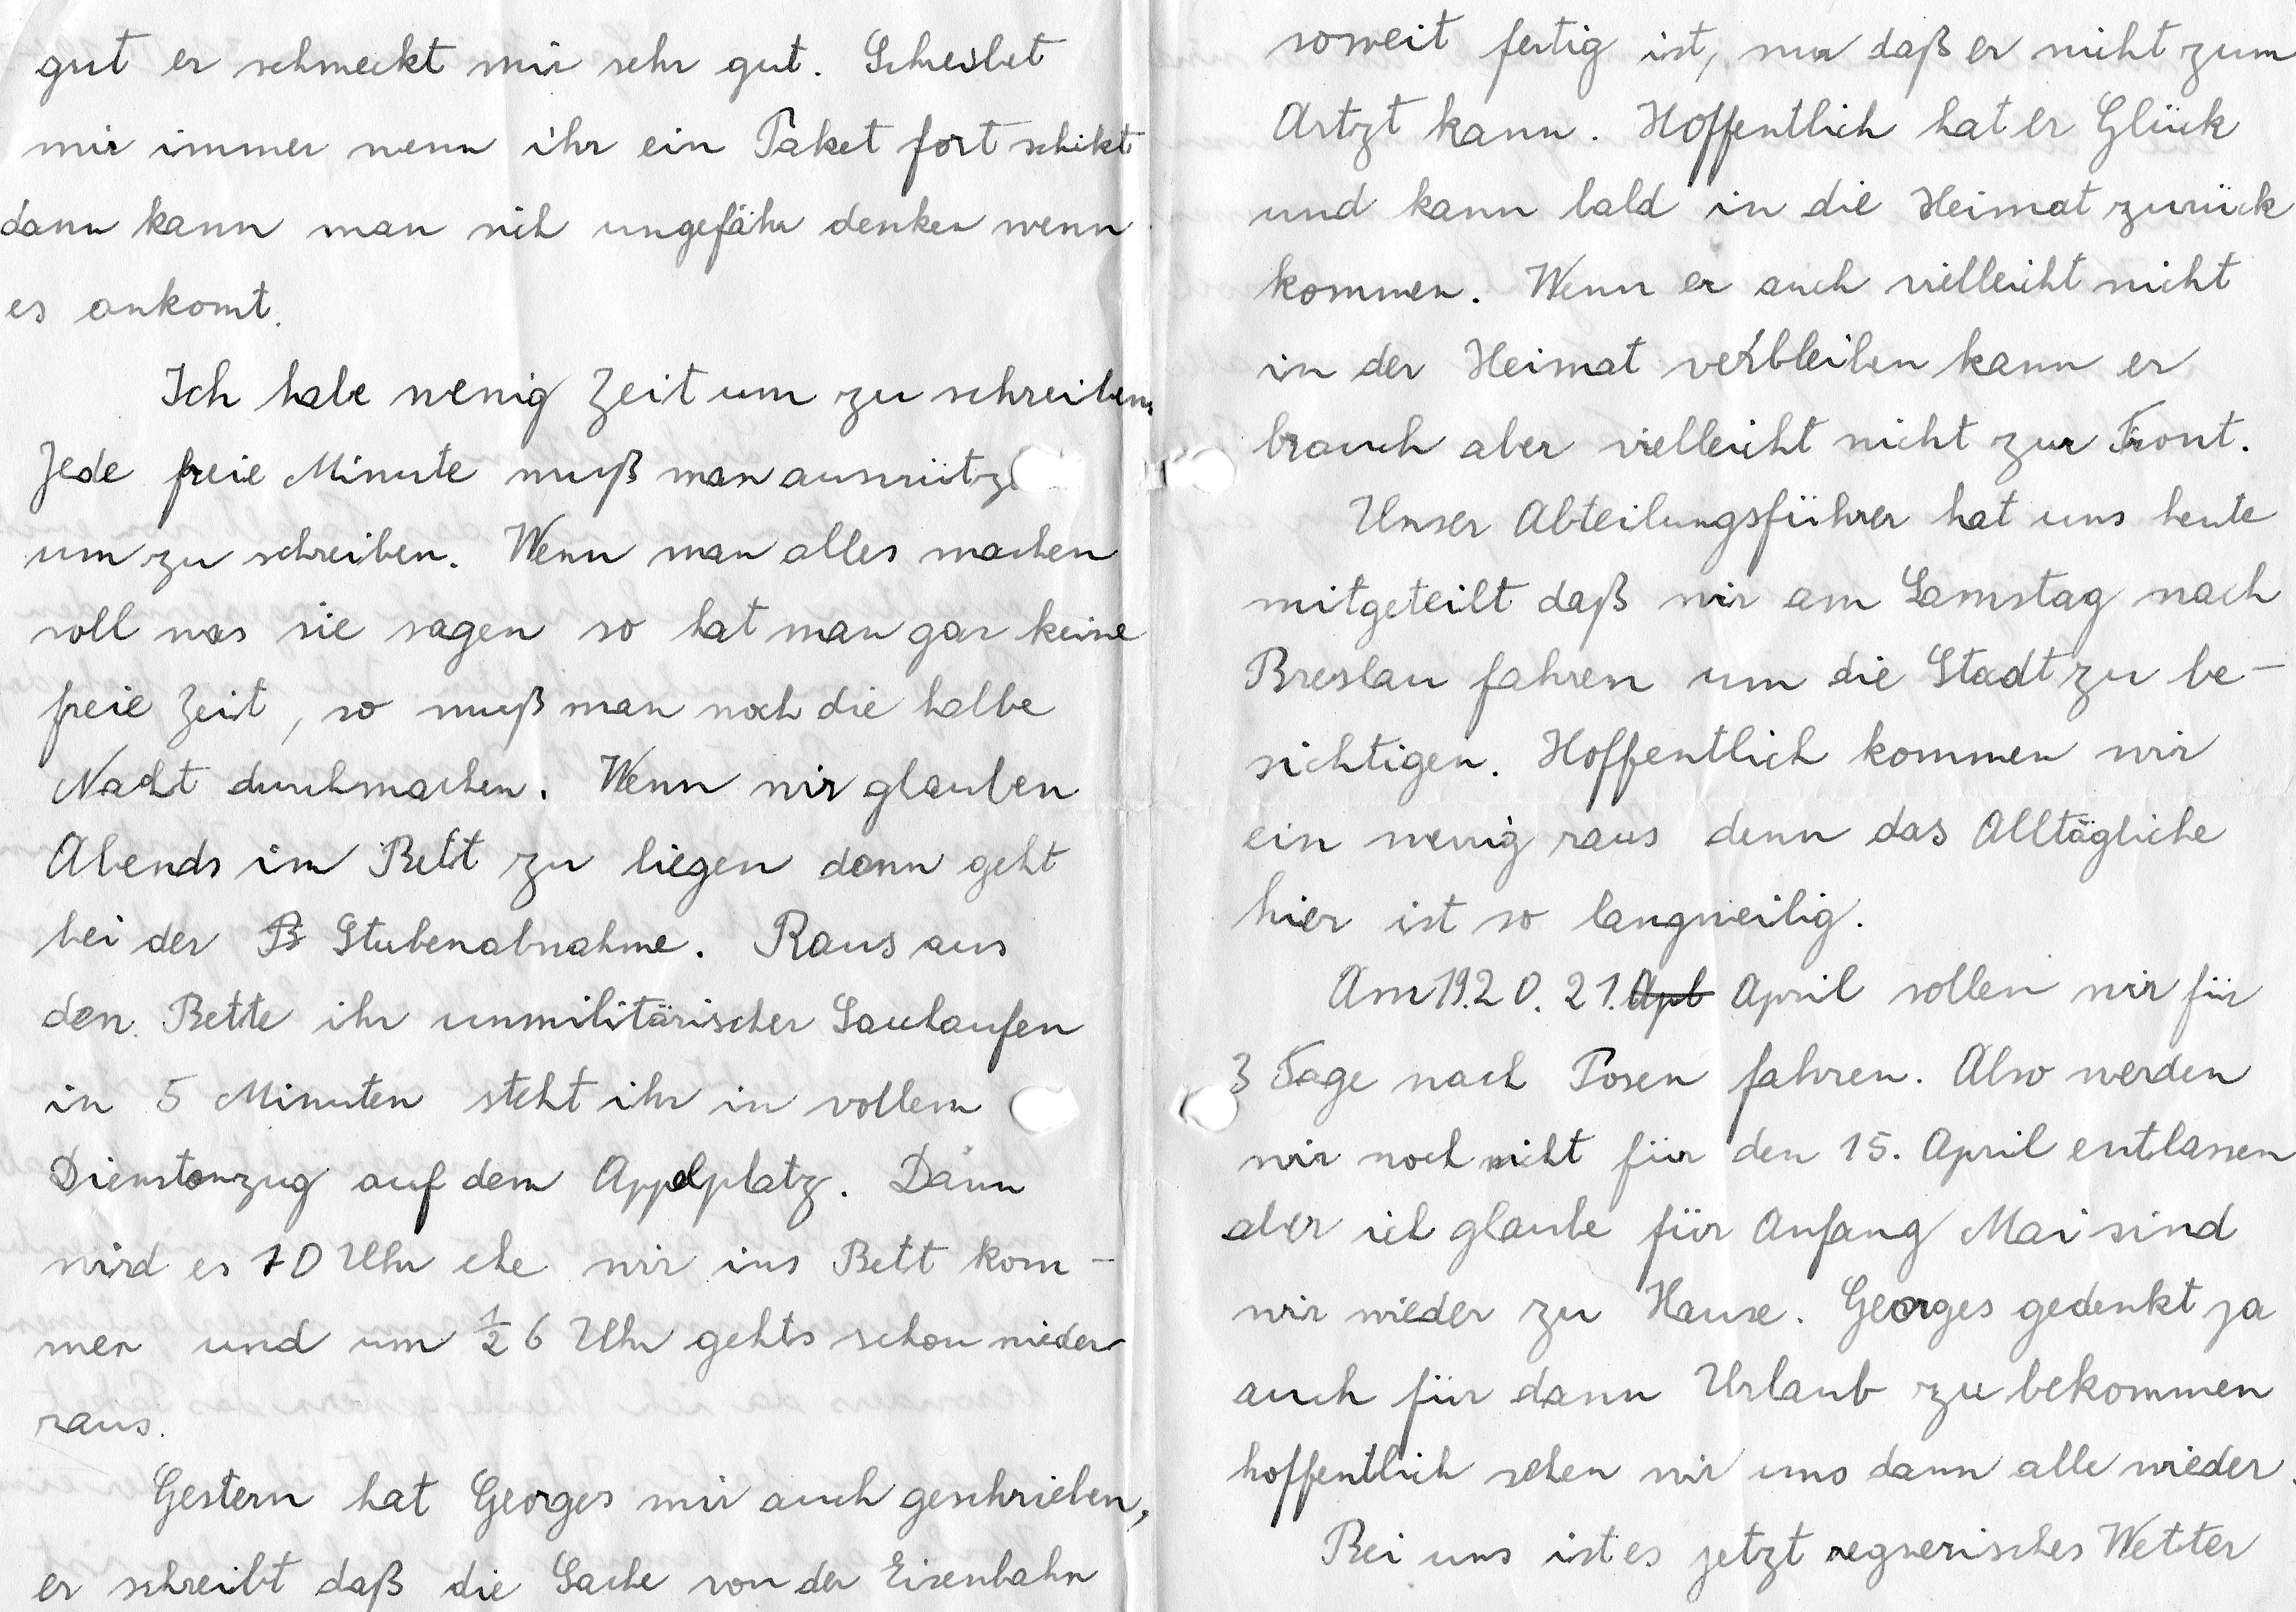 gut er schmeckt mir sehr gut. Schreibet
mir immer wenn ihr ein Paket fort schikt
dann kann man sich ungefähr denken wenn
es ankomt.
Ich habe wenig Zeit um zu schreiben.
Jede freie Minute muß man ausnütze
um zu schreiben. Wenn man alles machen
soll was sie sagen so hat man gar keine
freie Zeit, so muß man noch die halbe
Nacht durchmachen. Wenn wir glauben
Abends im Bett zu liegen dann geht
bei der B Stubenabnahme. Raus aus
den Bette ihr unmilitärischer Sauhaufen
in 5 Minuten steht ihr in vollem
Dienstanzug auf dem Appelplatz. Dann
wird es 10 Uhr ehe wir ins Bett kom-
men und um ½ 6 Uhr gehts schon wieder
raus.
Gestern hat Georges mir auch geschrieben,
er schreibt daß die Sache von der Eisenbahn
soweit fertig ist, nur daß er nicht zum
Artzt kann. Hoffentlich hat er Glück
und kann bald in die Heimat zurück
kommen. Wenn er auch vielleicht nicht
in der Heimat verbleiben kann er
brauch aber vielleicht nicht zur Front.
Unser Abteilungsführer hat uns heute
mitgeteilt daß wir am Samstag nach
Breslau fahren um die Stadt zu be-
sichtigen. Hoffentlich kommen wir
ein wenig raus denn das Alltägliche
hier ist so langweilig.
Am 19.20.21. Apl April sollen wir für
3 Tage nach Posen fahren. Also werden
wir noch nicht für den 15. April entlassen
aber ich glaube für Anfang Mai sind
wir wieder zu Hause. Georges gedenkt ja
auch für dann Urlaub zu bekommen
hoffentlich sehen wir uns dann alle wieder.
Bei uns ist es jetzt regnerisches Wetter